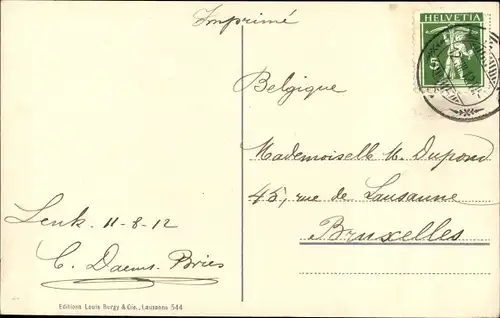 Imprimé
HELVETIA
5
Belgique
Mademoiselle M. Dupond
45, rue de Lausanne
Bruxelles
Lenk. 11-8-12
C. Daems-Bries
Editions Louis Burgy & Cie., Lausanne 544